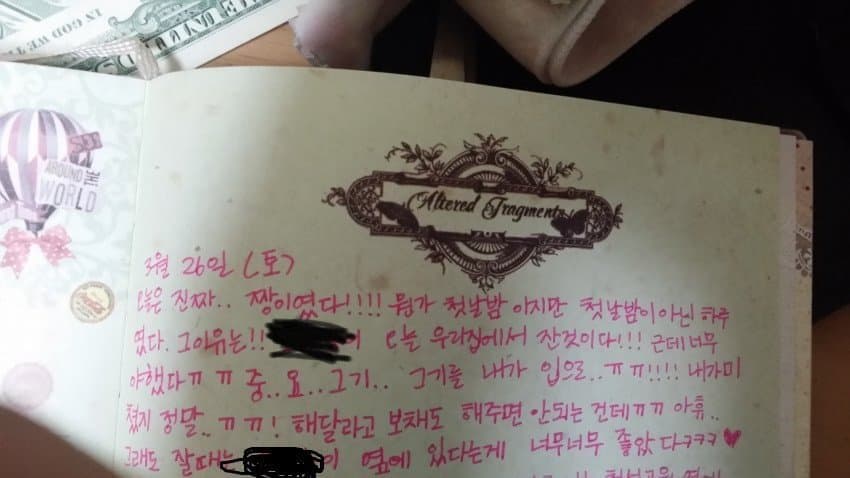 IN GOD WE
AROUND THE
WORLD
Altered Fragments
3월 26일 (토)
오늘은 진짜.. 짱이였다!!!! 뭔가 첫날밤 이지만 첫날밤이 아닌 하루
였다. 그이유는!! 이 오늘 우리집에서 잔것이다!!! 근데 너무
야했다ㅠㅠ 중..요..그기.. 그기를 내가 입으로..ㅠㅠ!!!! 내가미
쳤지 정말..ㅠㅠ! 해달라고 보채도 해주면 안되는 건데ㅠㅠ 아휴..
그래도 잘때는 이 옆에 있다는게 너무너무 좋았다ㅋㅋㅋ♥
옆에